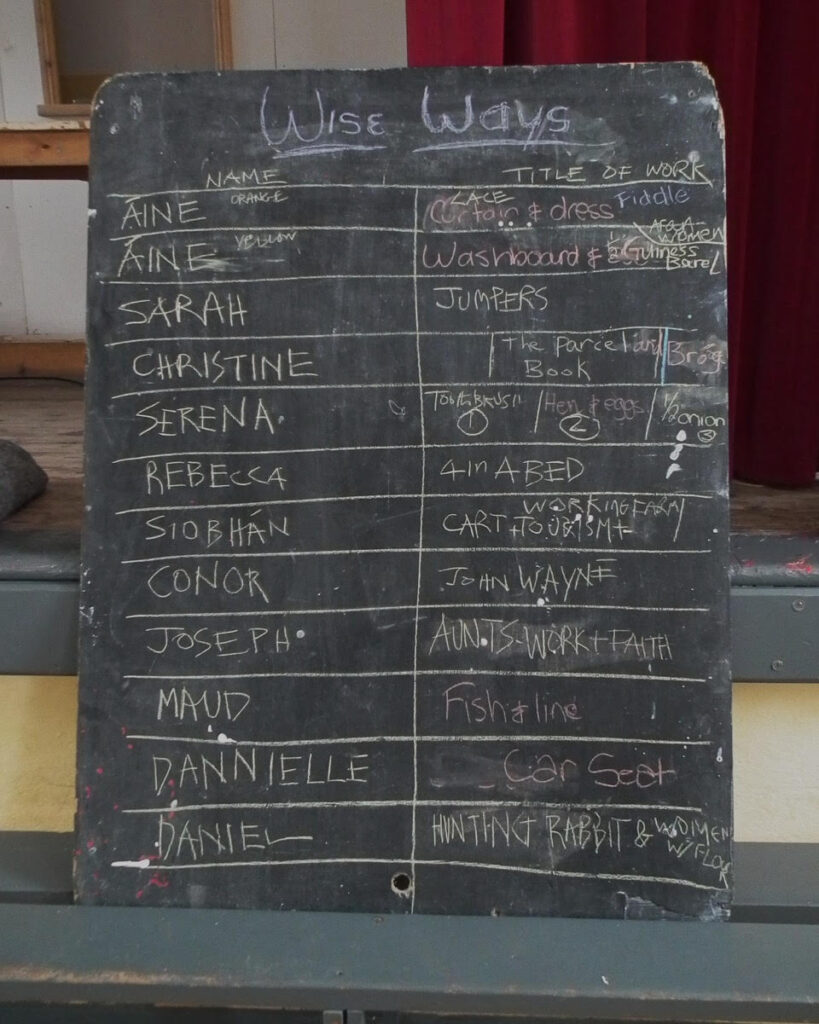 Wise Ways
NAME TITLE OF WORK
ÁINE ORANGE LACE Curtain & dress Fiddle
ÁINE YELLOW Washboard & 1/2 Guiness Barel WOMEN
SARAH JUMPERS
CHRISTINE the parcel and Book Bróg
SERENA. TOOTHBRUSH 1 Hen & eggs 2 1/2 onion 3
REBECCA 4 in A BED
SIOBHÁN CART + TOURISM + WORKING FARM
CONOR JOHN WAYNE
JOSEPH AUNTS-WORK + FAITH
MAUD Fish & line
DANNIELLE Car Seat
DANIEL HUNTING RABBIT & WOMEN W/